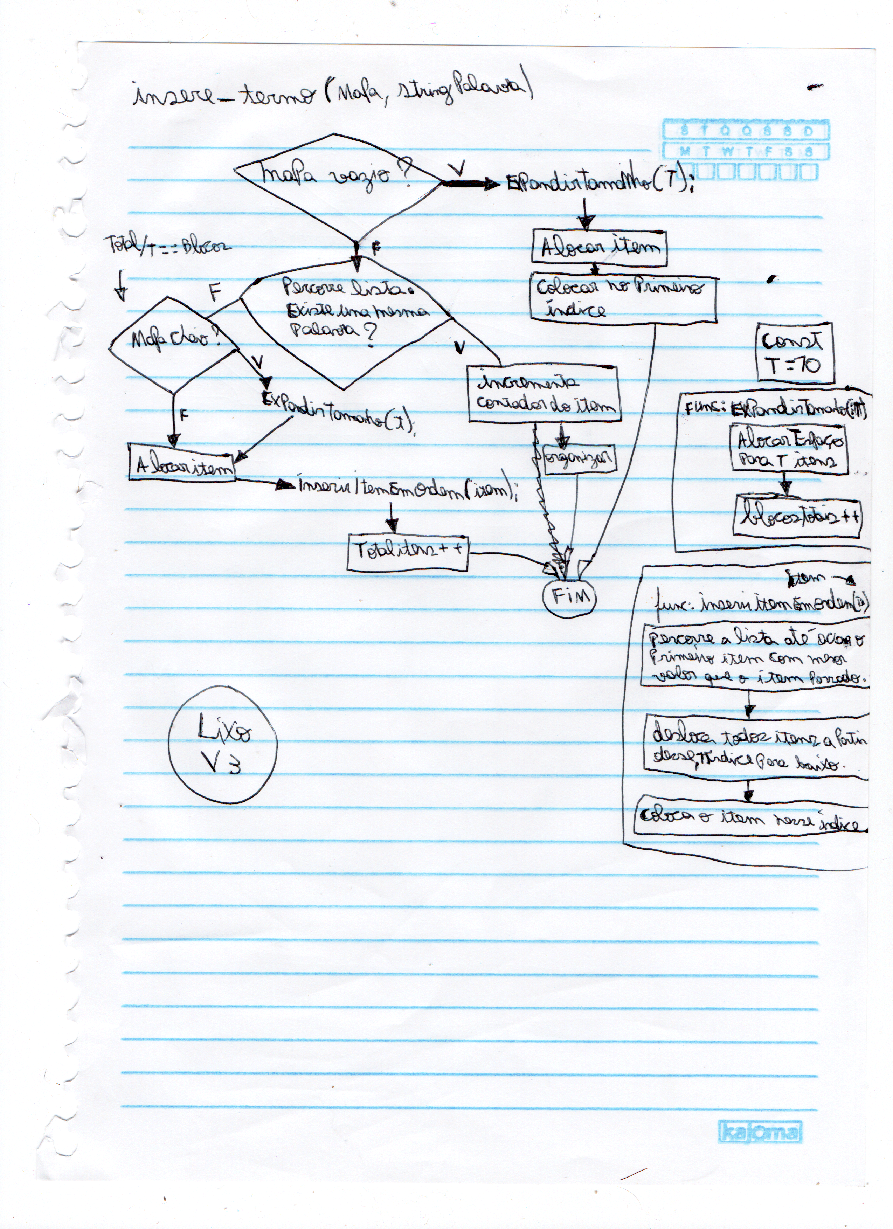 insere_termo (Mapa, string Palavra)
S T Q Q S S D
M T W T F S S
Mapa vazio?
V
ExPandirTamanho(T);
F
Alocar item
Colocar no Primeiro
índice
Total/T == Blocos
F
Percorre lista.
Existe uma mesma
Palavra?
V
Mapa cheio?
V
ExPandirTamanho(T);
F
Alocar item
InserirItemEmOrdem(item);
Total itens ++
incrementa
contador do item
organizar
FIM
Const
T = 10
Func: EXPandirTamanho(T)
Alocar Espaço
Para T itens
blocos totais ++
Item
func: inserirItemEmOrdem( )
Percorre a lista até achar o
Primeiro item com menor
valor que o item Passado.
desloca todos itens a Partir
desse índice Para baixo.
Colocar o item nesse índice
Lixo
V 3
kajoma